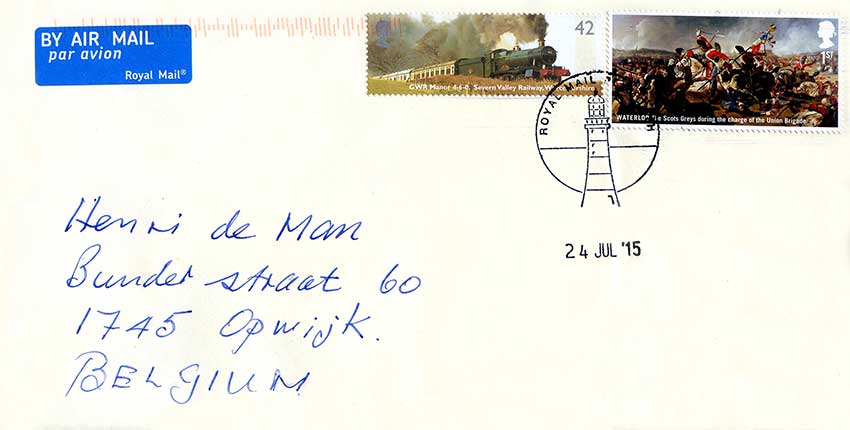 BY AIR MAIL
par avion
Royal Mail®
42
GWR Manor 4-6-0, Severn Valley Railway,
1ST
WATERLOO Scots Greys during the charge of the Union Brigade
ROYAL MAIL
24 JUL '15
Henri de Man
Bunderstraat 60
1745 Opwijk.
BELGIUM